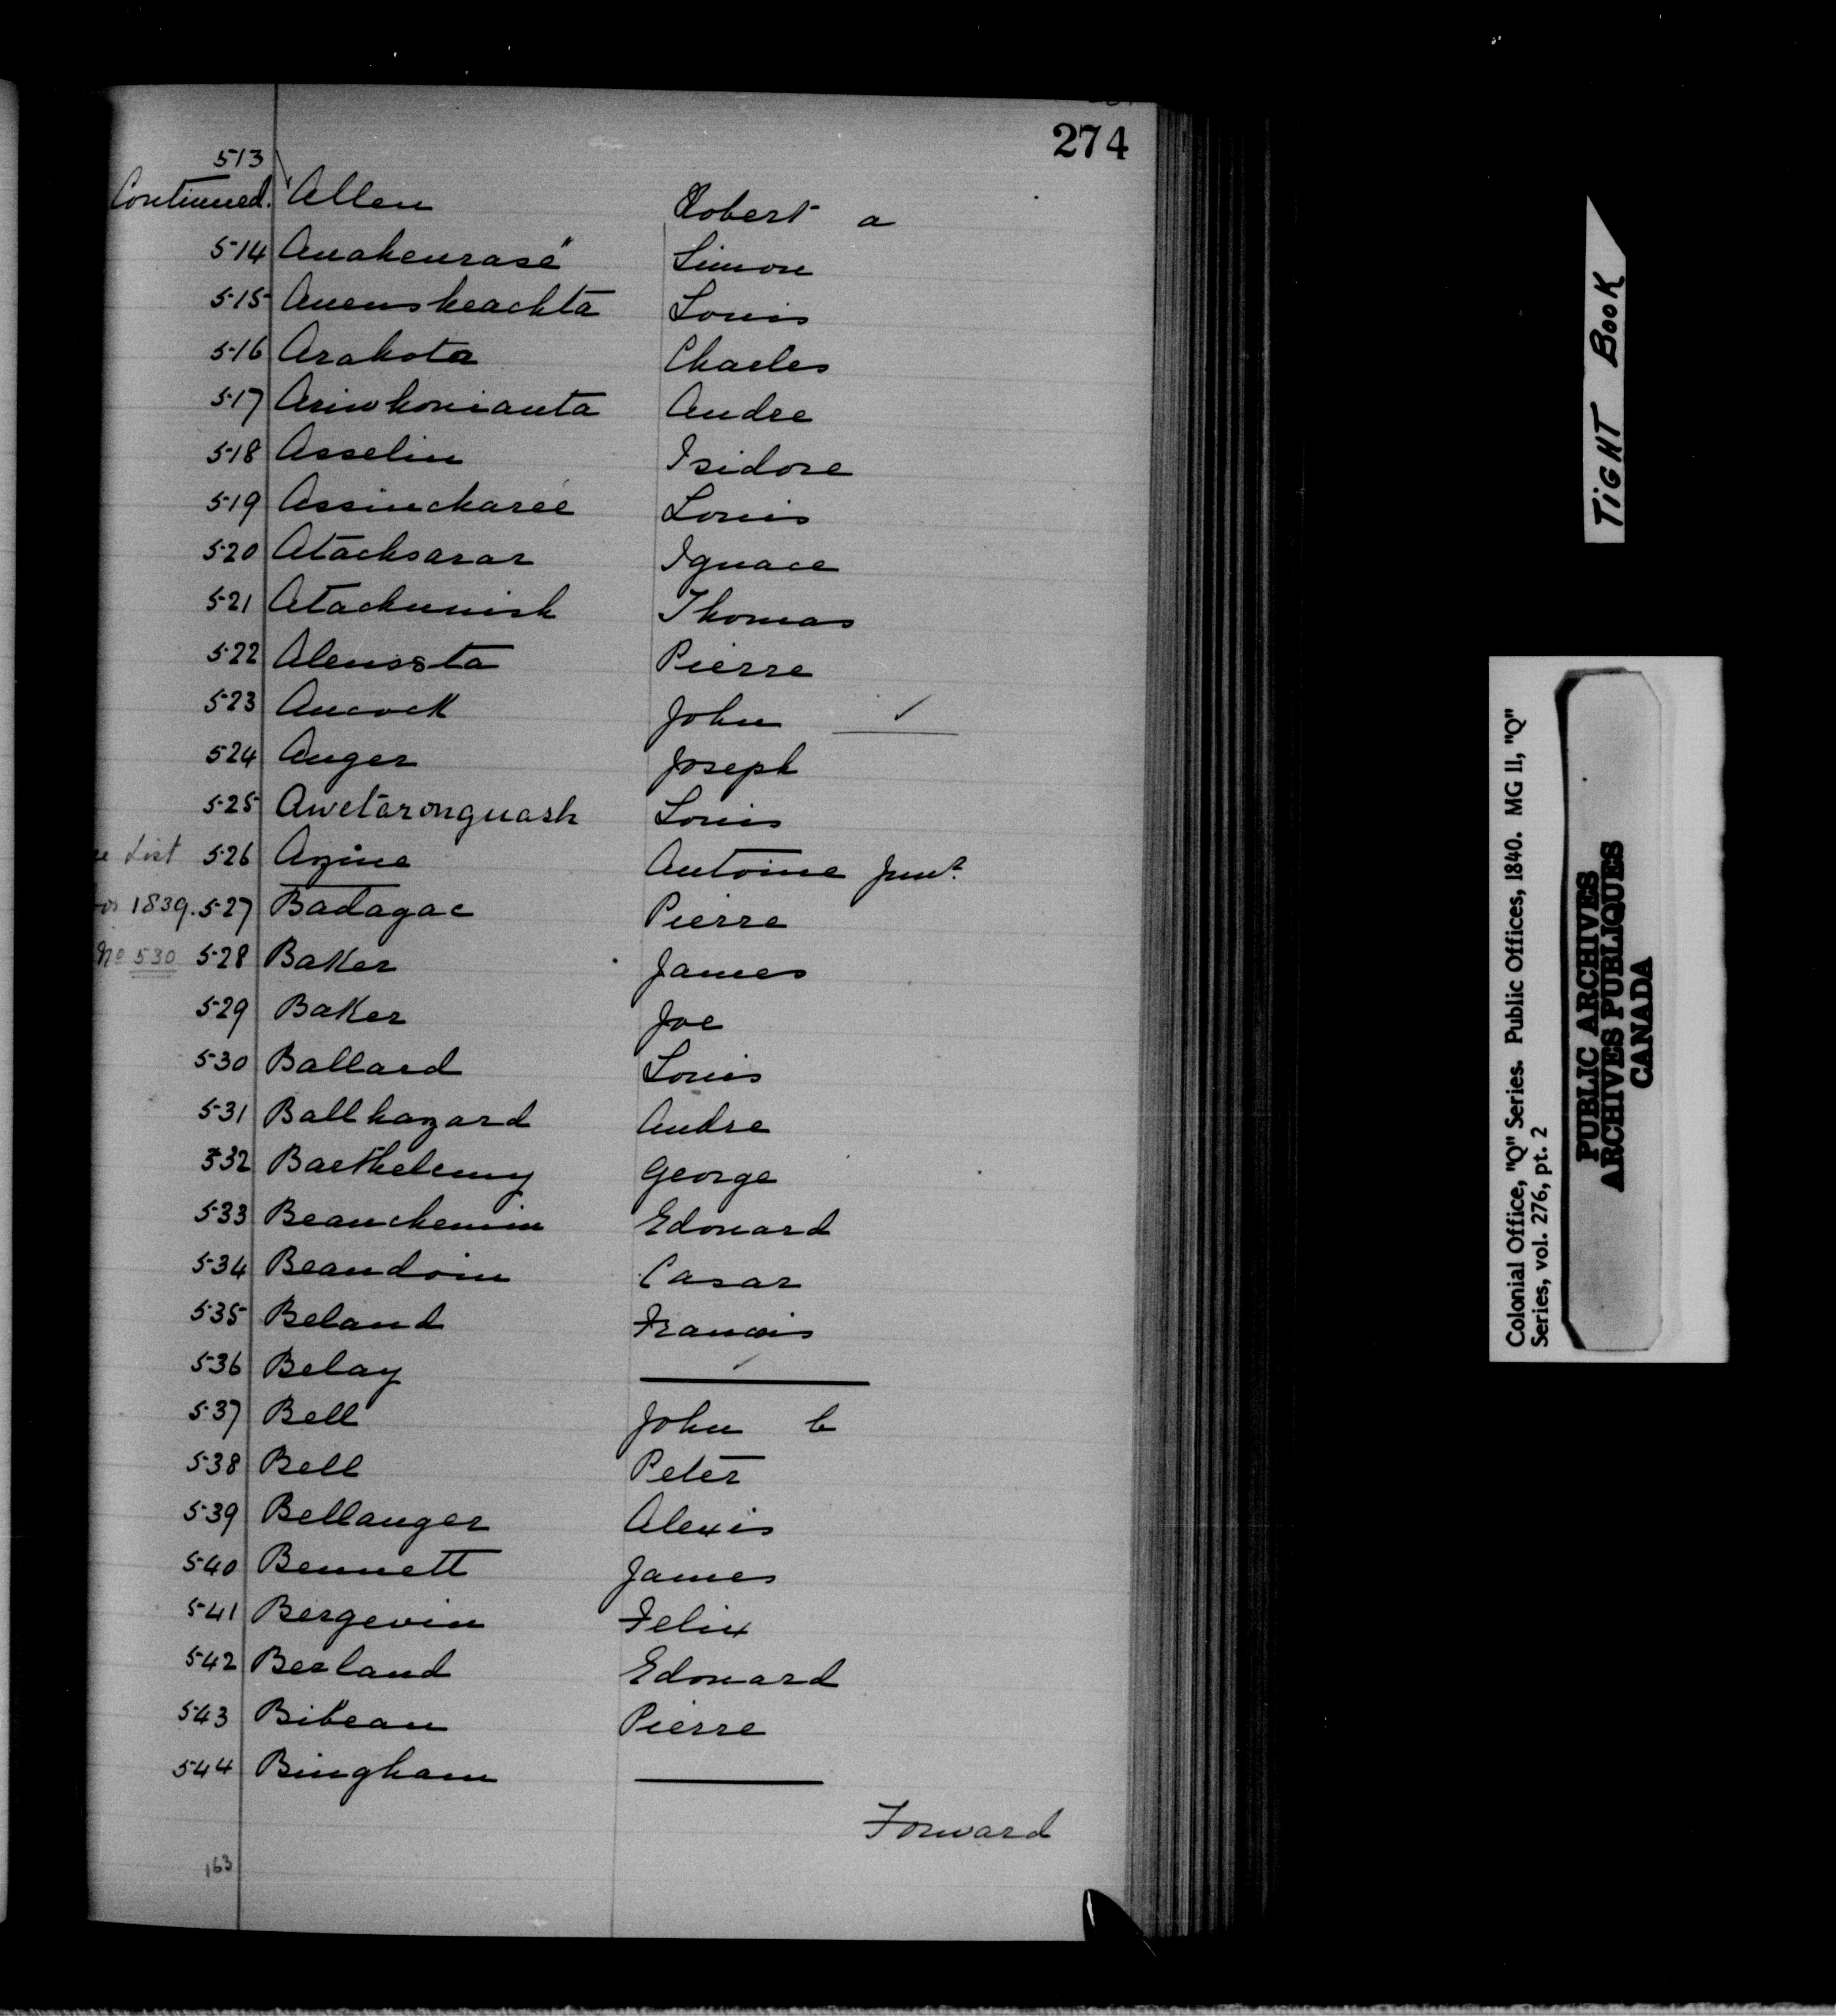 274
513
Continued. Allen Robert a
514 Anakenrasé Simon
515 Anenskeachta Louis
516 Arakota Charles
517 Ariwkonianta Andre
518 Asselin Isidore
519 Assincharée Louis
520 Atachsarar Ignace
521 Atachunish Thomas
522 Alenssta Pierre
523 Aucock John ✓
524 Auger Joseph
525 Awetaronguash Louis
List 526 Azine Antoine Junr.
for 1839. 527 Badagac Pierre
No 530 528 Baker James
529 Baker Joe
530 Ballard Louis
531 Ballhazard Andre
532 Barthelemy George
533 Beauchemin Edouard
534 Beaudoin Casar
535 Beland Francois
536 Belay ✓
537 Bell John C
538 Bell Peter
539 Bellanger Alexis
540 Bennett James
541 Bergevin Felix
542 Berland Edouard
543 Bibeau Pierre
544 Bingham
Forward
163
TIGHT BOOK
Colonial Office, "Q" Series. Public Offices, 1840. MG 11, "Q"
Series, vol. 276, pt. 2
PUBLIC ARCHIVES
ARCHIVES PUBLIQUES
CANADA